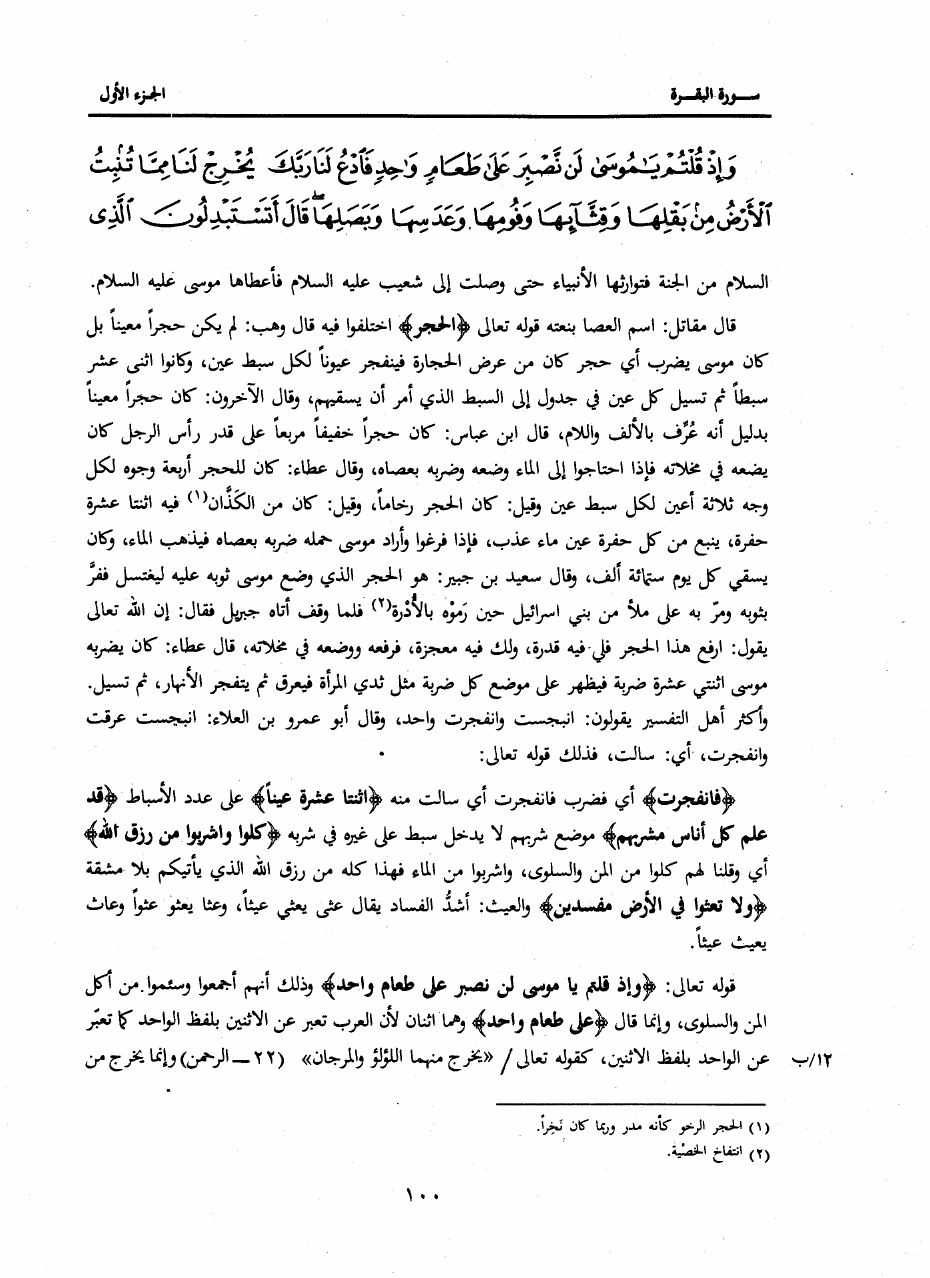 سورة البقرة
الجزء الأول
وَإِذْ قُلْتُمْ يَٰمُوسَىٰ لَن نَّصْبِرَ عَلَىٰ طَعَامٍ وَٰحِدٍ فَٱدْعُ لَنَا رَبَّكَ يُخْرِجْ لَنَا مِمَّا تُنۢبِتُ
ٱلْأَرْضُ مِنۢ بَقْلِهَا وَقِثَّآئِهَا وَفُومِهَا وَعَدَسِهَا وَبَصَلِهَا ۖ قَالَ أَتَسْتَبْدِلُونَ ٱلَّذِى
السلام من الجنة فتوارثها الأنبياء حتى وصلت إلى شعيب عليه السلام فأعطاها موسى عليه السلام.
قال مقاتل: اسم العصا بنعته قوله تعالى ﴿الحجر﴾ اختلفوا فيه قال وهب: لم يكن حجراً معيناً بل
كان موسى يضرب أي حجر كان من عرض الحجارة فينفجر عيوناً لكل سبط عين، وكانوا اثنى عشر
سبطاً ثم تسيل كل عين في جدول إلى السبط الذي أمر أن يسقيهم، وقال الآخرون: كان حجراً معيناً
بدليل أنه عُرِّف بالألف واللام، قال ابن عباس: كان حجراً خفيفاً مربعاً على قدر رأس الرجل كان
يضعه في مخلاته فإذا احتاجوا إلى الماء وضعه وضربه بعصاه، وقال عطاء: كان للحجر أربعة وجوه لكل
وجه ثلاثة أعين لكل سبط عين وقيل: كان الحجر رخاماً، وقيل: كان من الكَذَّان(١) فيه اثنتا عشرة
حفرة، ينبع من كل حفرة عين ماء عذب، فإذا فرغوا وأراد موسى حمله ضربه بعصاه فيذهب الماء، وكان
يسقي كل يوم ستمائة ألف، وقال سعيد بن جبير: هو الحجر الذي وضع موسى ثوبه عليه ليغتسل ففرَّ
بثوبه ومرّ به على ملأ من بني اسرائيل حين رَموْه بالأُدْرة(٢) فلما وقف أتاه جبريل فقال: إن الله تعالى
يقول: ارفع هذا الحجر فلي فيه قدرة، ولك فيه معجزة، فرفعه ووضعه في مخلاته، قال عطاء: كان يضربه
موسى اثنتي عشرة ضربة فيظهر على موضع كل ضربة مثل ثدي المرأة فيعرق ثم يتفجر الأنهار، ثم تسيل.
وأكثر أهل التفسير يقولون: انبجست وانفجرت واحد، وقال أبو عمرو بن العلاء: انبجست عرقت
وانفجرت، أي: سالت، فذلك قوله تعالى:
﴿فانفجرت﴾ أي فضرب فانفجرت أي سالت منه ﴿اثنتا عشرة عيناً﴾ على عدد الأسباط ﴿قد
علم كل أناس مشربهم﴾ موضع شربهم لا يدخل سبط على غيره في شربه ﴿كلوا واشربوا من رزق الله﴾
أي وقلنا لهم كلوا من المن والسلوى، واشربوا من الماء فهذا كله من رزق الله الذي يأتيكم بلا مشقة
﴿ولا تعثوا في الأرض مفسدين﴾ والعيث: أشدُّ الفساد يقال عثى يعثي عيثاً، وعثا يعثو عثواً وعاث
يعيث عيثاً.
قوله تعالى: ﴿وإذ قلتم يا موسى لن نصبر على طعام واحد﴾ وذلك أنهم أجمعوا وسئموا من أكل
المن والسلوى، وإنما قال ﴿على طعام واحد﴾ وهما اثنان لأن العرب تعبر عن الاثنين بلفظ الواحد كما تعبّر
عن الواحد بلفظ الاثنين، كقوله تعالى / «يخرج منهما اللؤلؤ والمرجان» (٢٢ ــ الرحمن) وإنما يخرج من
١٢/ب
(١) الحجر الرخو كأنه مدر وربما كان نَخِراً.
(٢) انتفاخ الخصْية.
١٠٠